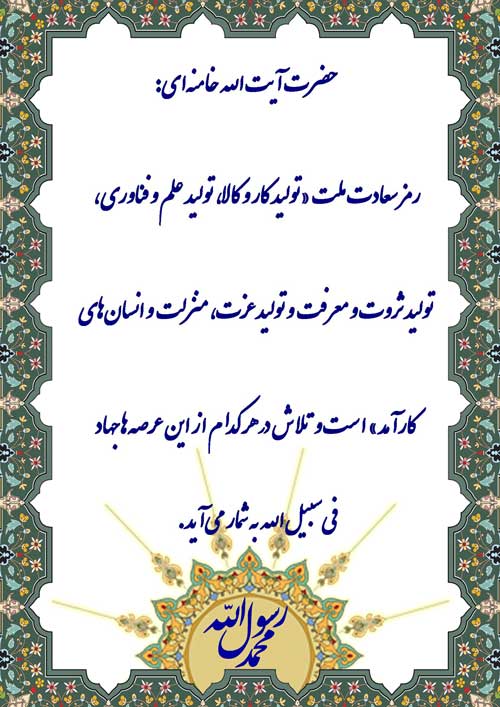 حضرت آیت الله خامنه‌ای:
رمز سعادت ملت «تولید کار و کالا، تولید علم و فناوری،
تولید ثروت و معرفت و تولید عزت، منزلت و انسان‌های
کارآمد» است و تلاش در هر کدام از این عرصه‌ها جهاد
فی سبیل الله به شمار می‌آید.
محمد رسول الله